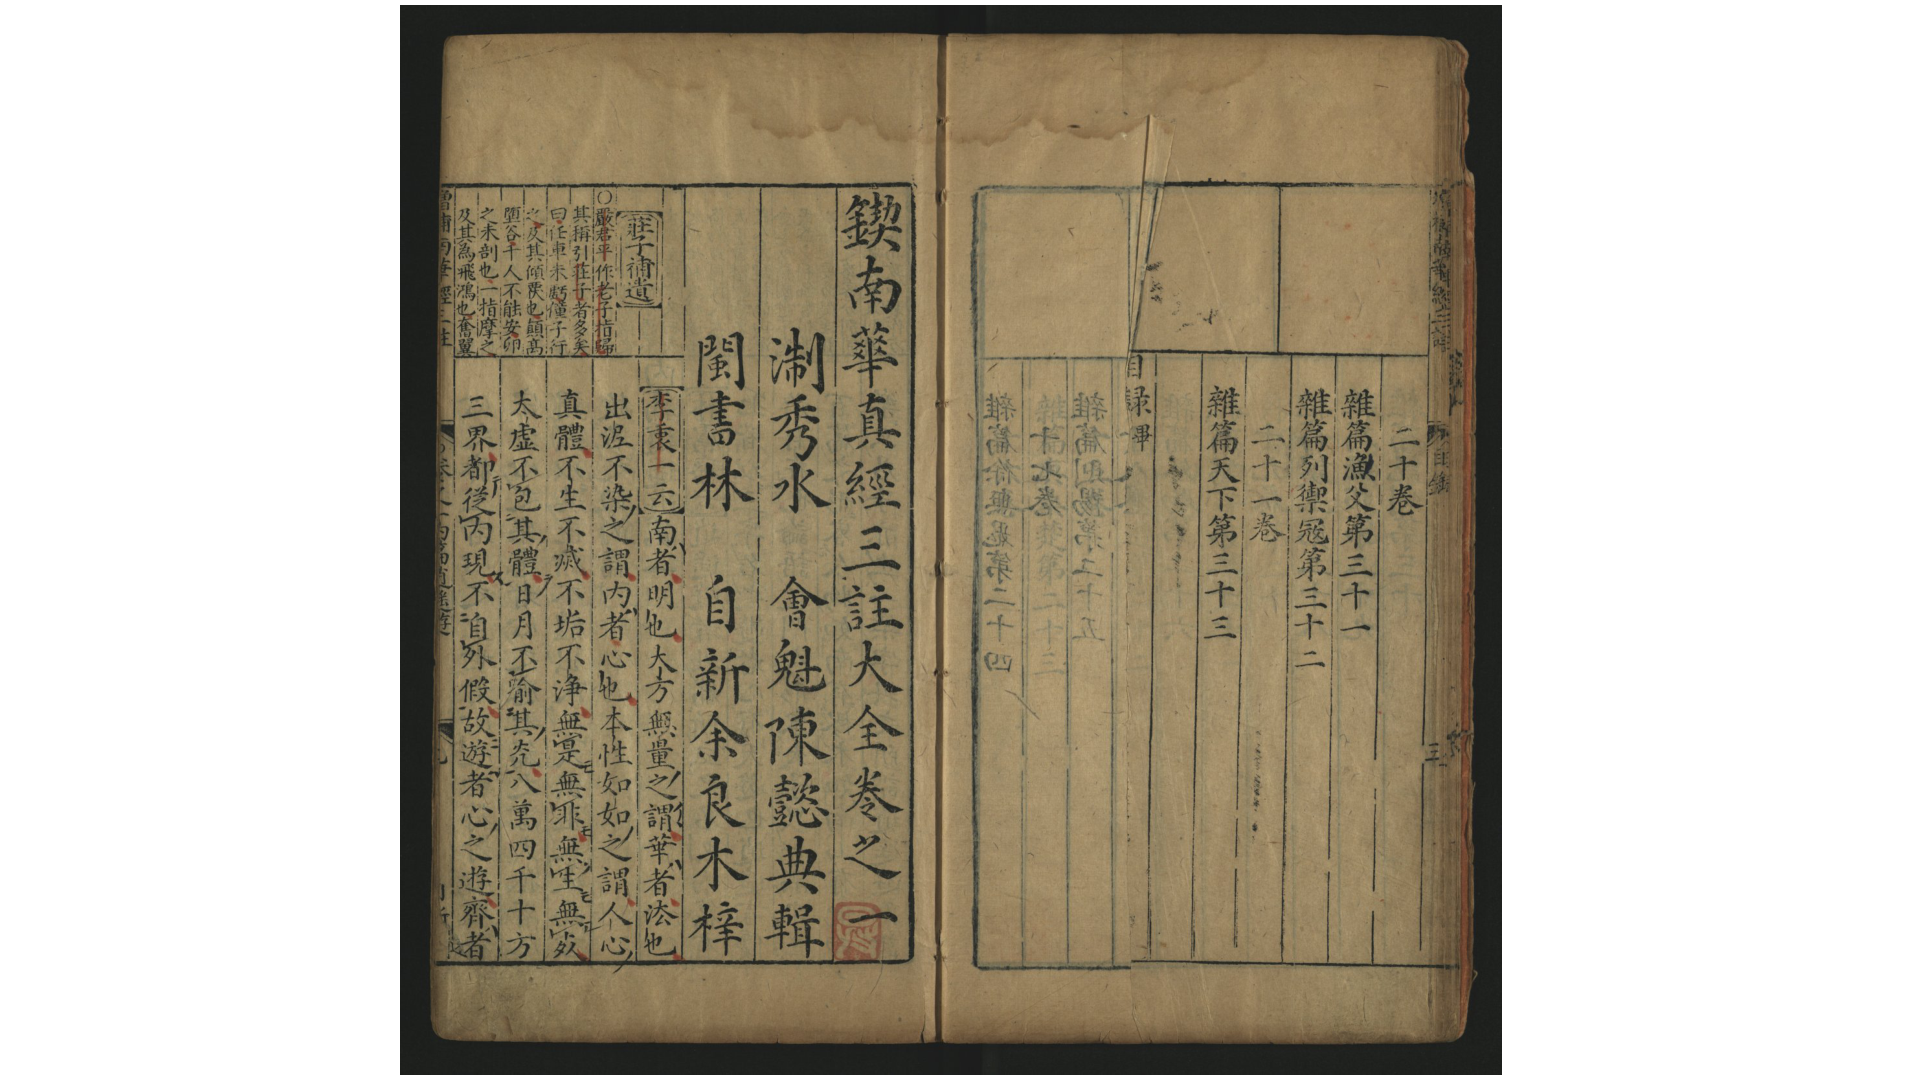 二十卷
雜篇漁父第三十一
雜篇列禦冦第三十二
二十一卷
雜篇天下第三十三
目録畢
鍥南華真經三註大全卷之一
淛秀水 會魁陳懿典輯
閩書林 自新余良木梓
莊子補遺
○嚴君平作老子指歸
其稱引莊子者多矣
曰任車未虧僮子行
之及其傾覆也顛高
墮谷千人不能安卵
之未剖也一指摩之
及其為飛鴻也奮翼
李衷一云南者明也大方無量之謂華者法也
出泥不染之謂内者心也本性如如之謂人心
真體不生不滅不垢不淨無是無非無生無死
太虚不包其體日月不踰其光八萬四千十方
三界都從内現不自外假故遊者心之遊齊者